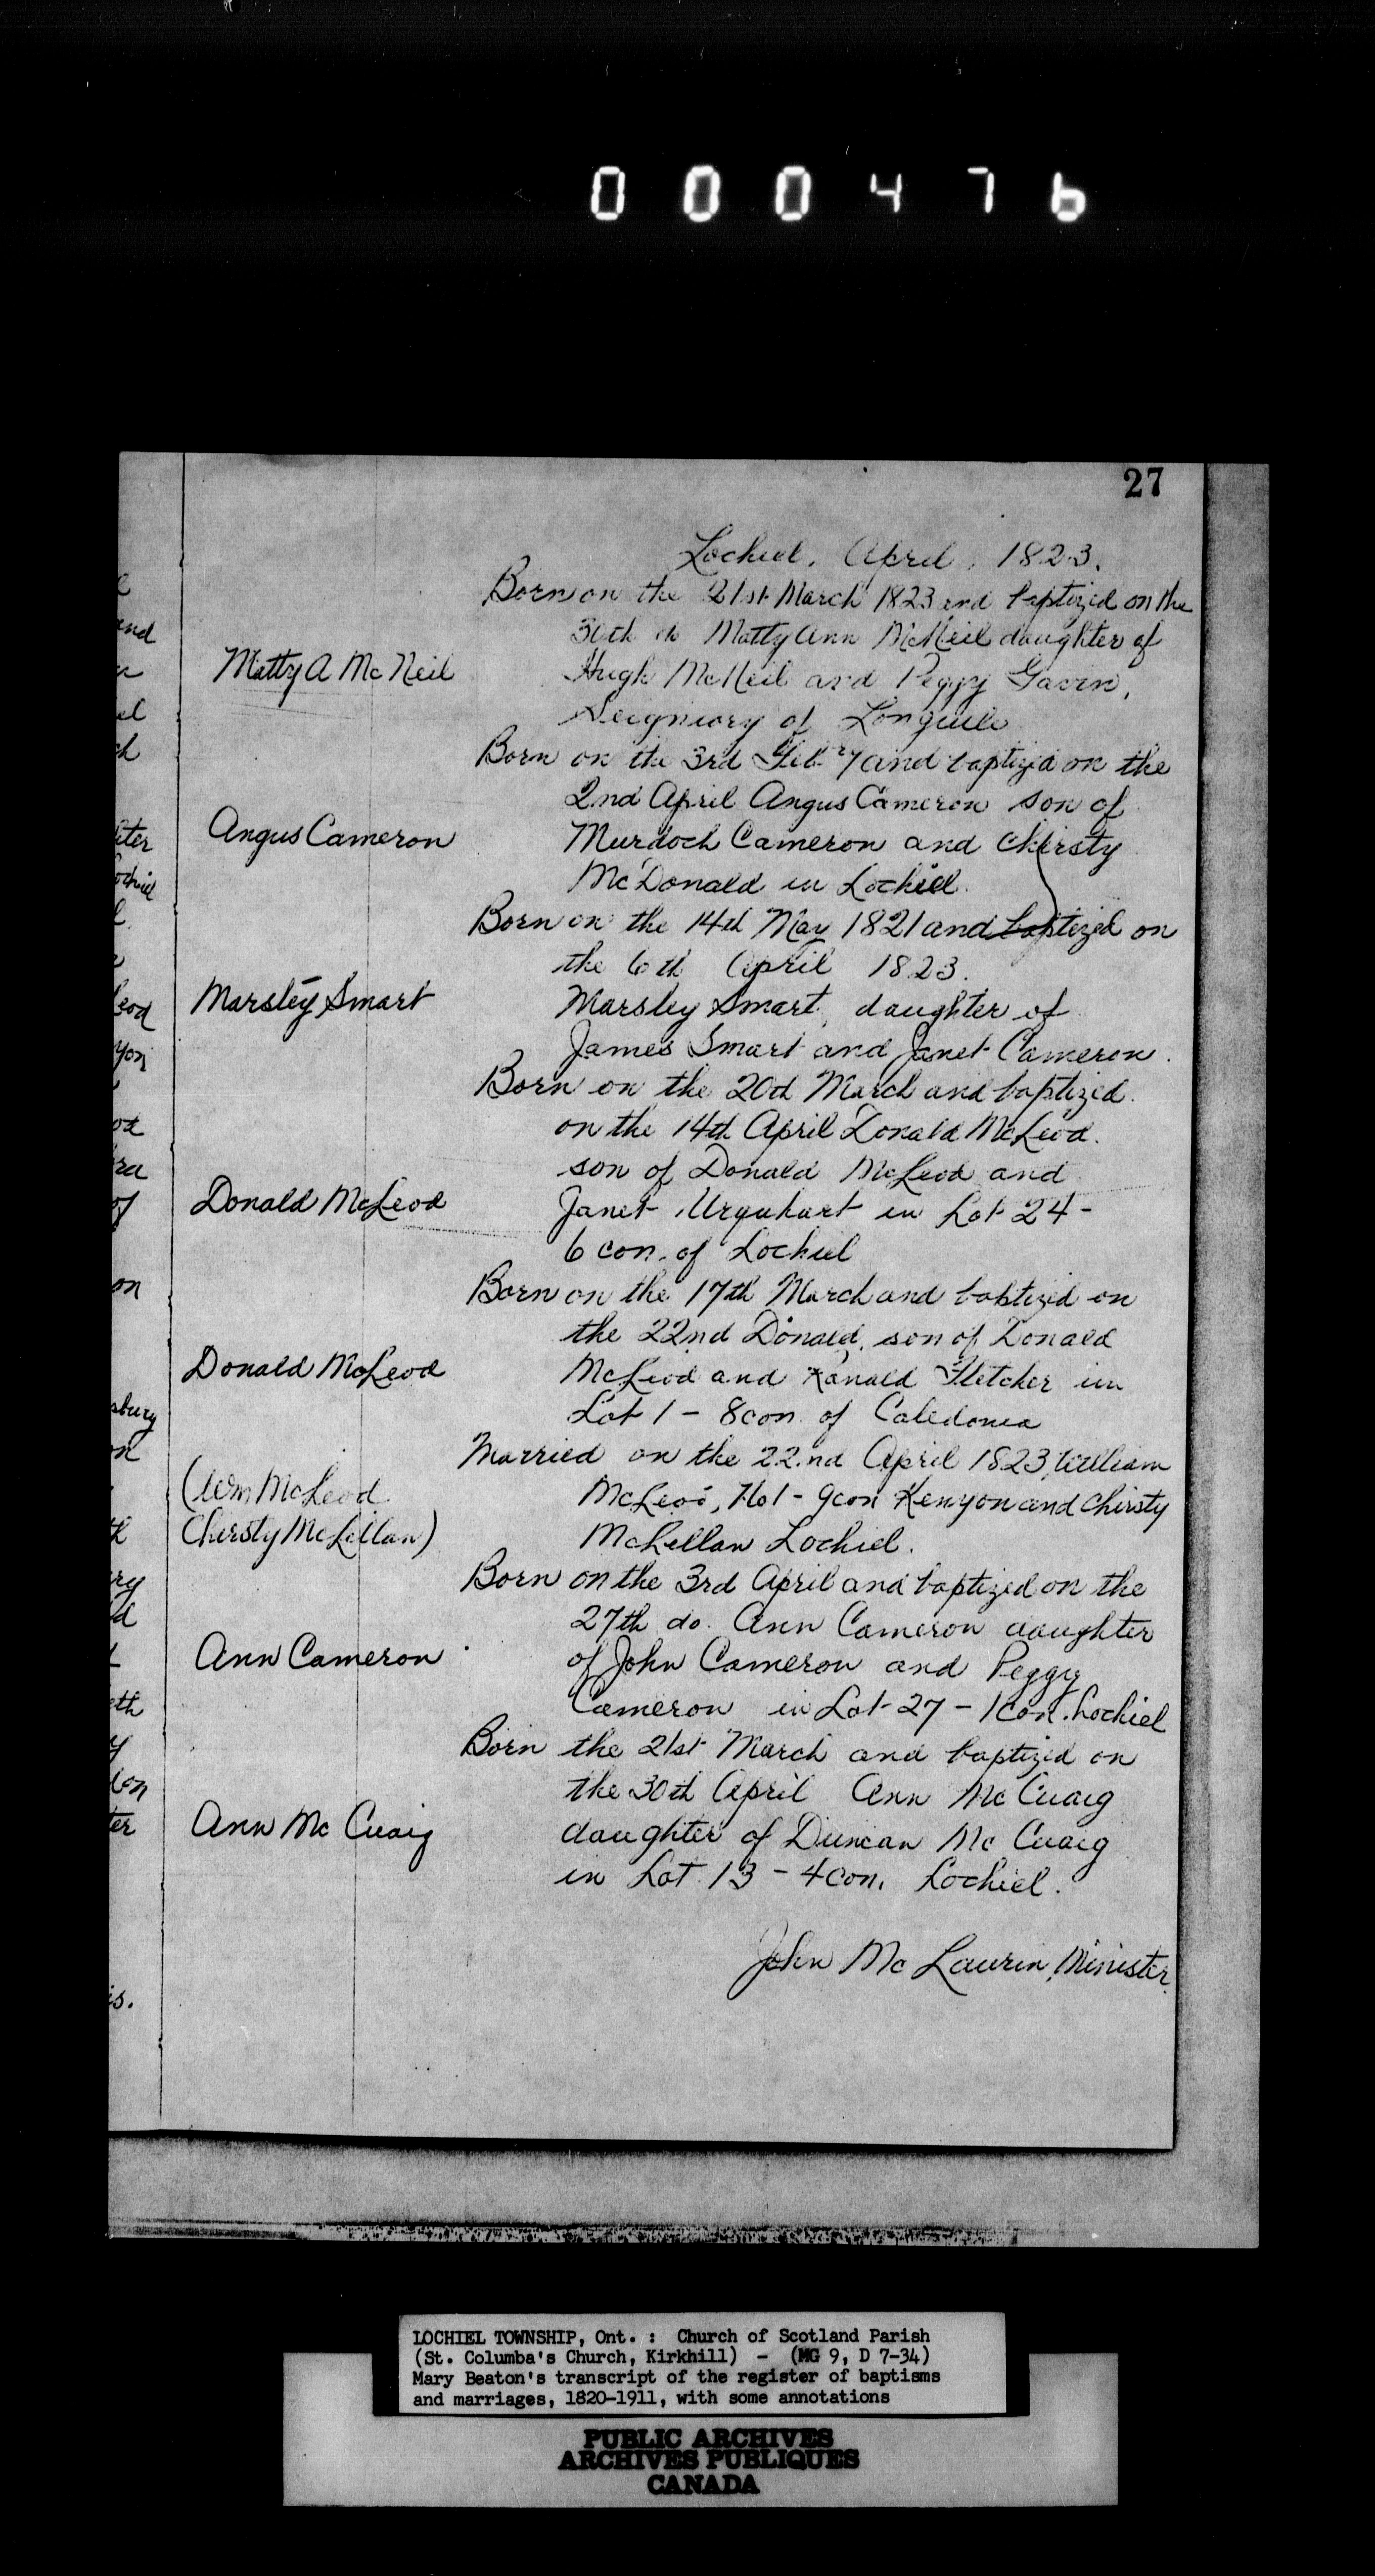 000476
27
Lochiel, April, 1823.
Born on the 21st March 1823 and baptized on the
30th do Matty Ann McNeil daughter of
Matty A Mc Neil
Hugh McNeil and Peggy Gavin,
Seigniory of Longuile
Born on the 3rd Feb.ry and baptized on the
2nd April Angus Cameron son of
Angus Cameron
Murdoch Cameron and Chirsty
McDonald in Lochiel.
Born on the 14th May 1821 and baptized on
the 6th April 1823.
Marsley Smart
Marsley Smart, daughter of
James Smart and Janet Cameron.
Born on the 20th March and baptized.
on the 14th April Donald McLeod.
son of Donald McLeod and
Donald McLeod
Janet Urquhart in Lot 24 -
6 con. of Lochiel
Born on the 17th March and baptized on
the 22nd Donald, son of Donald
Donald McLeod
McLeod and Ranald Fletcher in
Lot 1 - 8 con. of Caledonia
Married on the 22nd April 1823, William
(Wm McLeod
McLeod, No 1 - 9 con Kenyon and Chirsty
Chirsty McLellan)
McLellan Lochiel.
Born on the 3rd April and baptized on the
27th do. Ann Cameron daughter
Ann Cameron
of John Cameron and Peggy
Cameron in Lot 27 - 1 con. Lochiel
Born the 21st March and baptized on
the 30th April Ann Mc Cuaig
Ann Mc Cuaig
daughter of Duncan Mc Cuaig
in Lot 13 - 4 con. Lochiel.
John Mc Laurin, Minister.
LOCHIEL TOWNSHIP, Ont. : Church of Scotland Parish
(St. Columba's Church, Kirkhill) - (MG 9, D 7-34)
Mary Beaton's transcript of the register of baptisms
and marriages, 1820-1911, with some annotations
PUBLIC ARCHIVES
ARCHIVES PUBLIQUES
CANADA